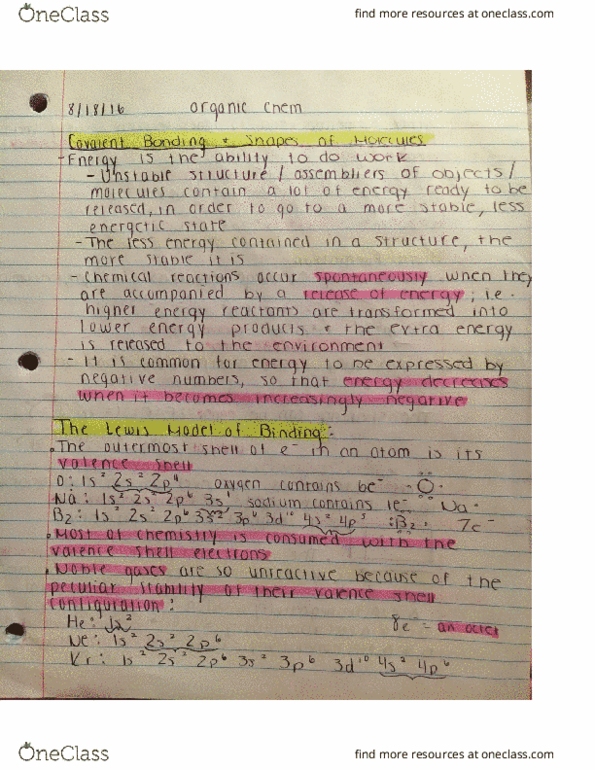 OneClass
find more resources at oneclass.com
8/18/16 organic chem
Covalent Bonding + Shapes of Molecules
- Energy is the ability to do work
- Unstable structure / assemblies of objects /
molecules contain a lot of energy ready to be
released, in order to go to a more stable, less
energetic state
- The less energy contained in a structure, the
more stable it is
- Chemical reactions occur spontaneously when they
are accompanied by a release of energy; i.e.
higher energy reactants are transformed into
lower energy products + the extra energy
is released to the environment
- It is common for energy to be expressed by
negative numbers, so that energy decreases
when it becomes increasingly negative
The Lewis Model of Binding:
• The outermost shell of e⁻ in an atom is its
valence shell
O: 1s² 2s² 2p⁴ oxygen contains 6e⁻ ·Ö·
Na: 1s² 2s² 2p⁶ 3s¹ sodium contains 1e⁻ Na·
Bz: 1s² 2s² 2p⁶ 3s² 3p⁶ 3d¹⁰ 4s² 4p⁵ :Bz: 7e⁻
• Most of chemistry is consumed with the
valence shell electrons
• Noble gases are so unreactive because of the
peculiar stability of their valence shell
configuration:
He: 1s² 8e⁻ = an octet
Ne: 1s² 2s² 2p⁶
Kr: 1s² 2s² 2p⁶ 3s² 3p⁶ 3d¹⁰ 4s² 4p⁶
OneClass
find more resources at oneclass.com